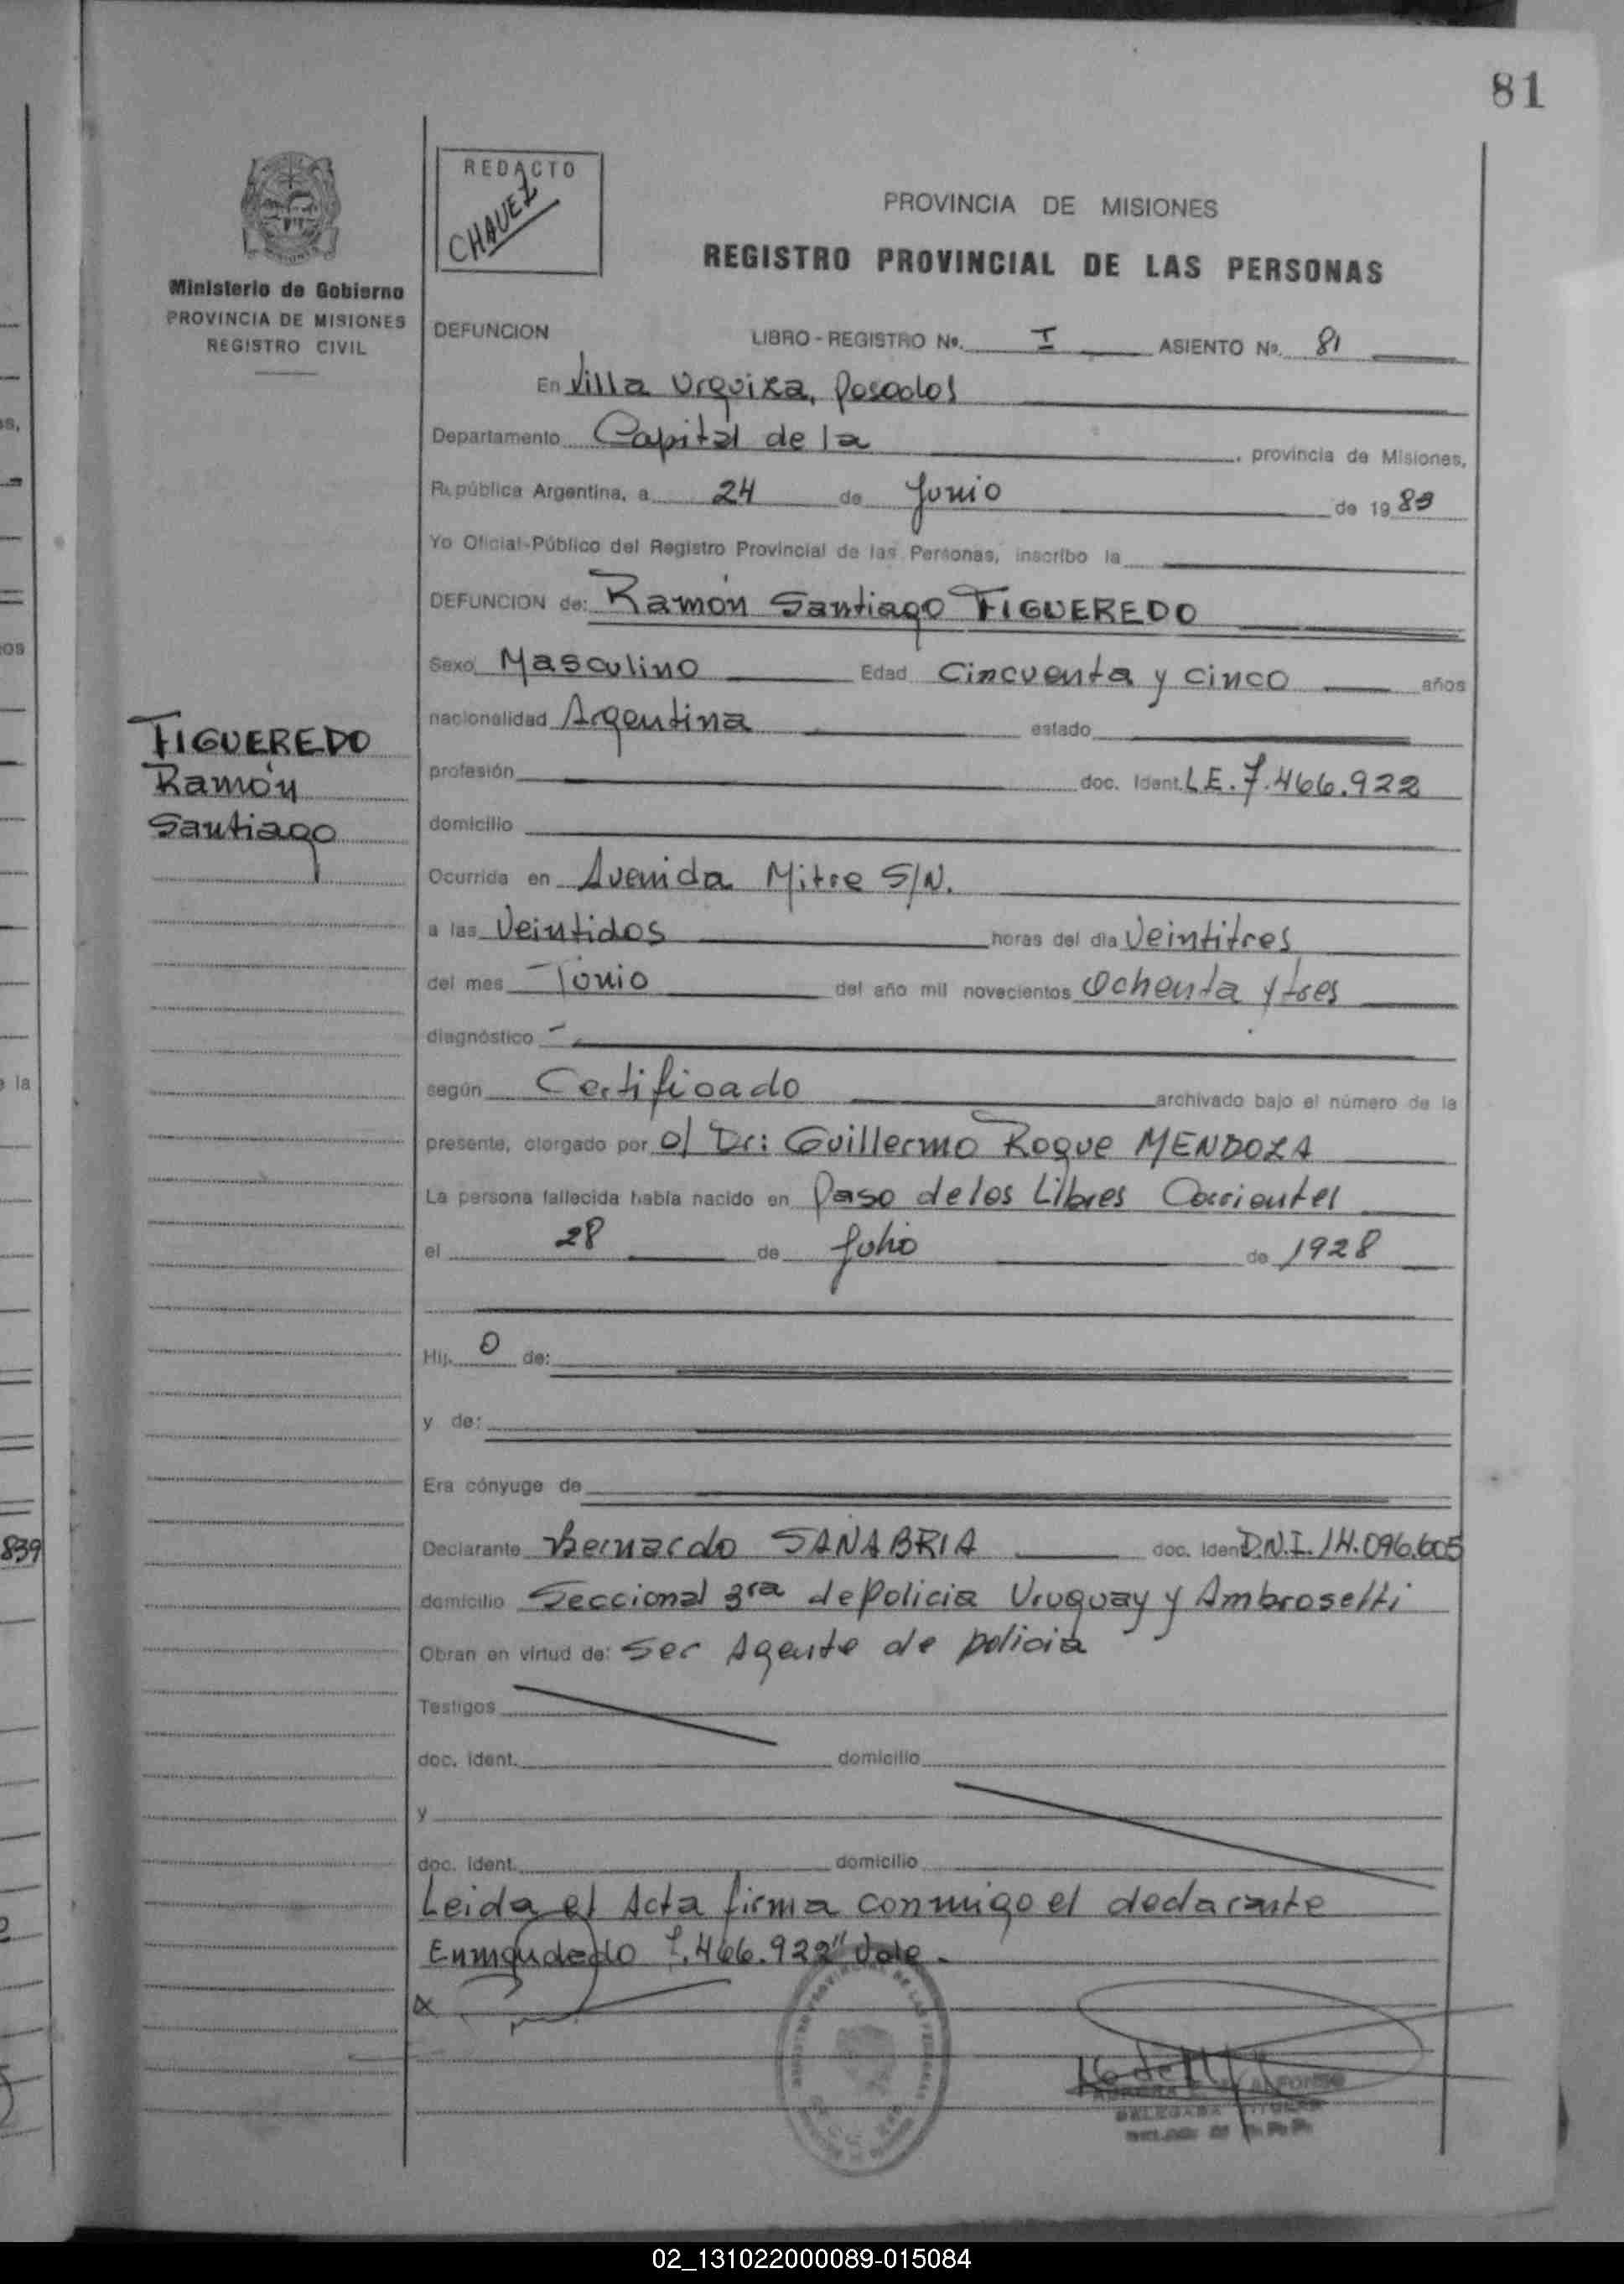 81
REDACTO
CHAVEZ
PROVINCIA DE MISIONES
REGISTRO PROVINCIAL DE LAS PERSONAS
Ministerio de Gobierno
PROVINCIA DE MISIONES
REGISTRO CIVIL
DEFUNCION LIBRO - REGISTRO Nº. I ASIENTO Nº. 81
En Villa Urquiza, Posadas
Departamento Capital de la , provincia de Misiones,
República Argentina, a 24 de Junio de 1983
Yo Oficial-Público del Registro Provincial de las Personas, inscribo la
DEFUNCION de: Ramón Santiago FIGUEREDO
Sexo Masculino Edad Cincuenta y cinco años
nacionalidad Argentina estado
FIGUEREDO
Ramón
Santiago
profesión doc. Ident. L.E. 7.466.922
domicilio
Ocurrida en Avenida Mitre S/N.
a las Veintidos horas del día Veintitres
del mes Junio del año mil novecientos Ochenta y tres
diagnóstico -
según Certificado archivado bajo el número de la
presente, otorgado por el Dr: Guillermo Roque MENDOZA
La persona fallecida había nacido en Paso de los Libres Corrientes
el 28 de Julio de 1928
Hij. o de:
y de:
Era cónyuge de
Declarante Bernardo SANABRIA doc. Iden D.N.I. 14.096.605
domicilio Seccional 3ra de Policia Uruguay y Ambrosetti
Obran en virtud de: Ser Agente de policia
Testigos
doc. ident. domicilio
y
doc. ident. domicilio
Leida el Acta firma conmigo el declarante
Enmendado 7.466.922" Vale.
839
la
02_131022000089-015084